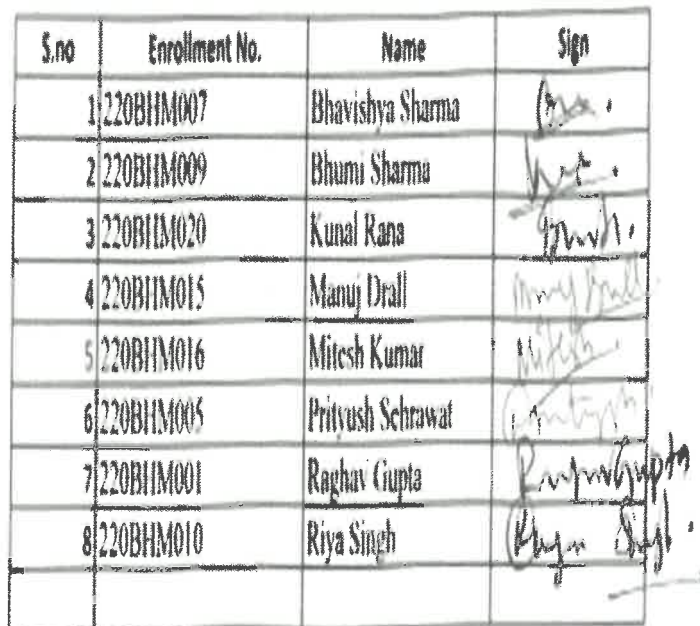 S.no Enrollment No. Name Sign
1 220BHM007 Bhavishya Sharma
2 220BHM009 Bhumi Sharma
3 220BHM020 Kunal Rana
4 220BHM015 Manuj Drall Manuj Drall
5 220BHM016 Mitesh Kumar Mitesh
6 220BHM005 Prityush Sehrawat
7 220BHM001 Raghav Gupta Gupta
8 220BHM010 Riya Singh